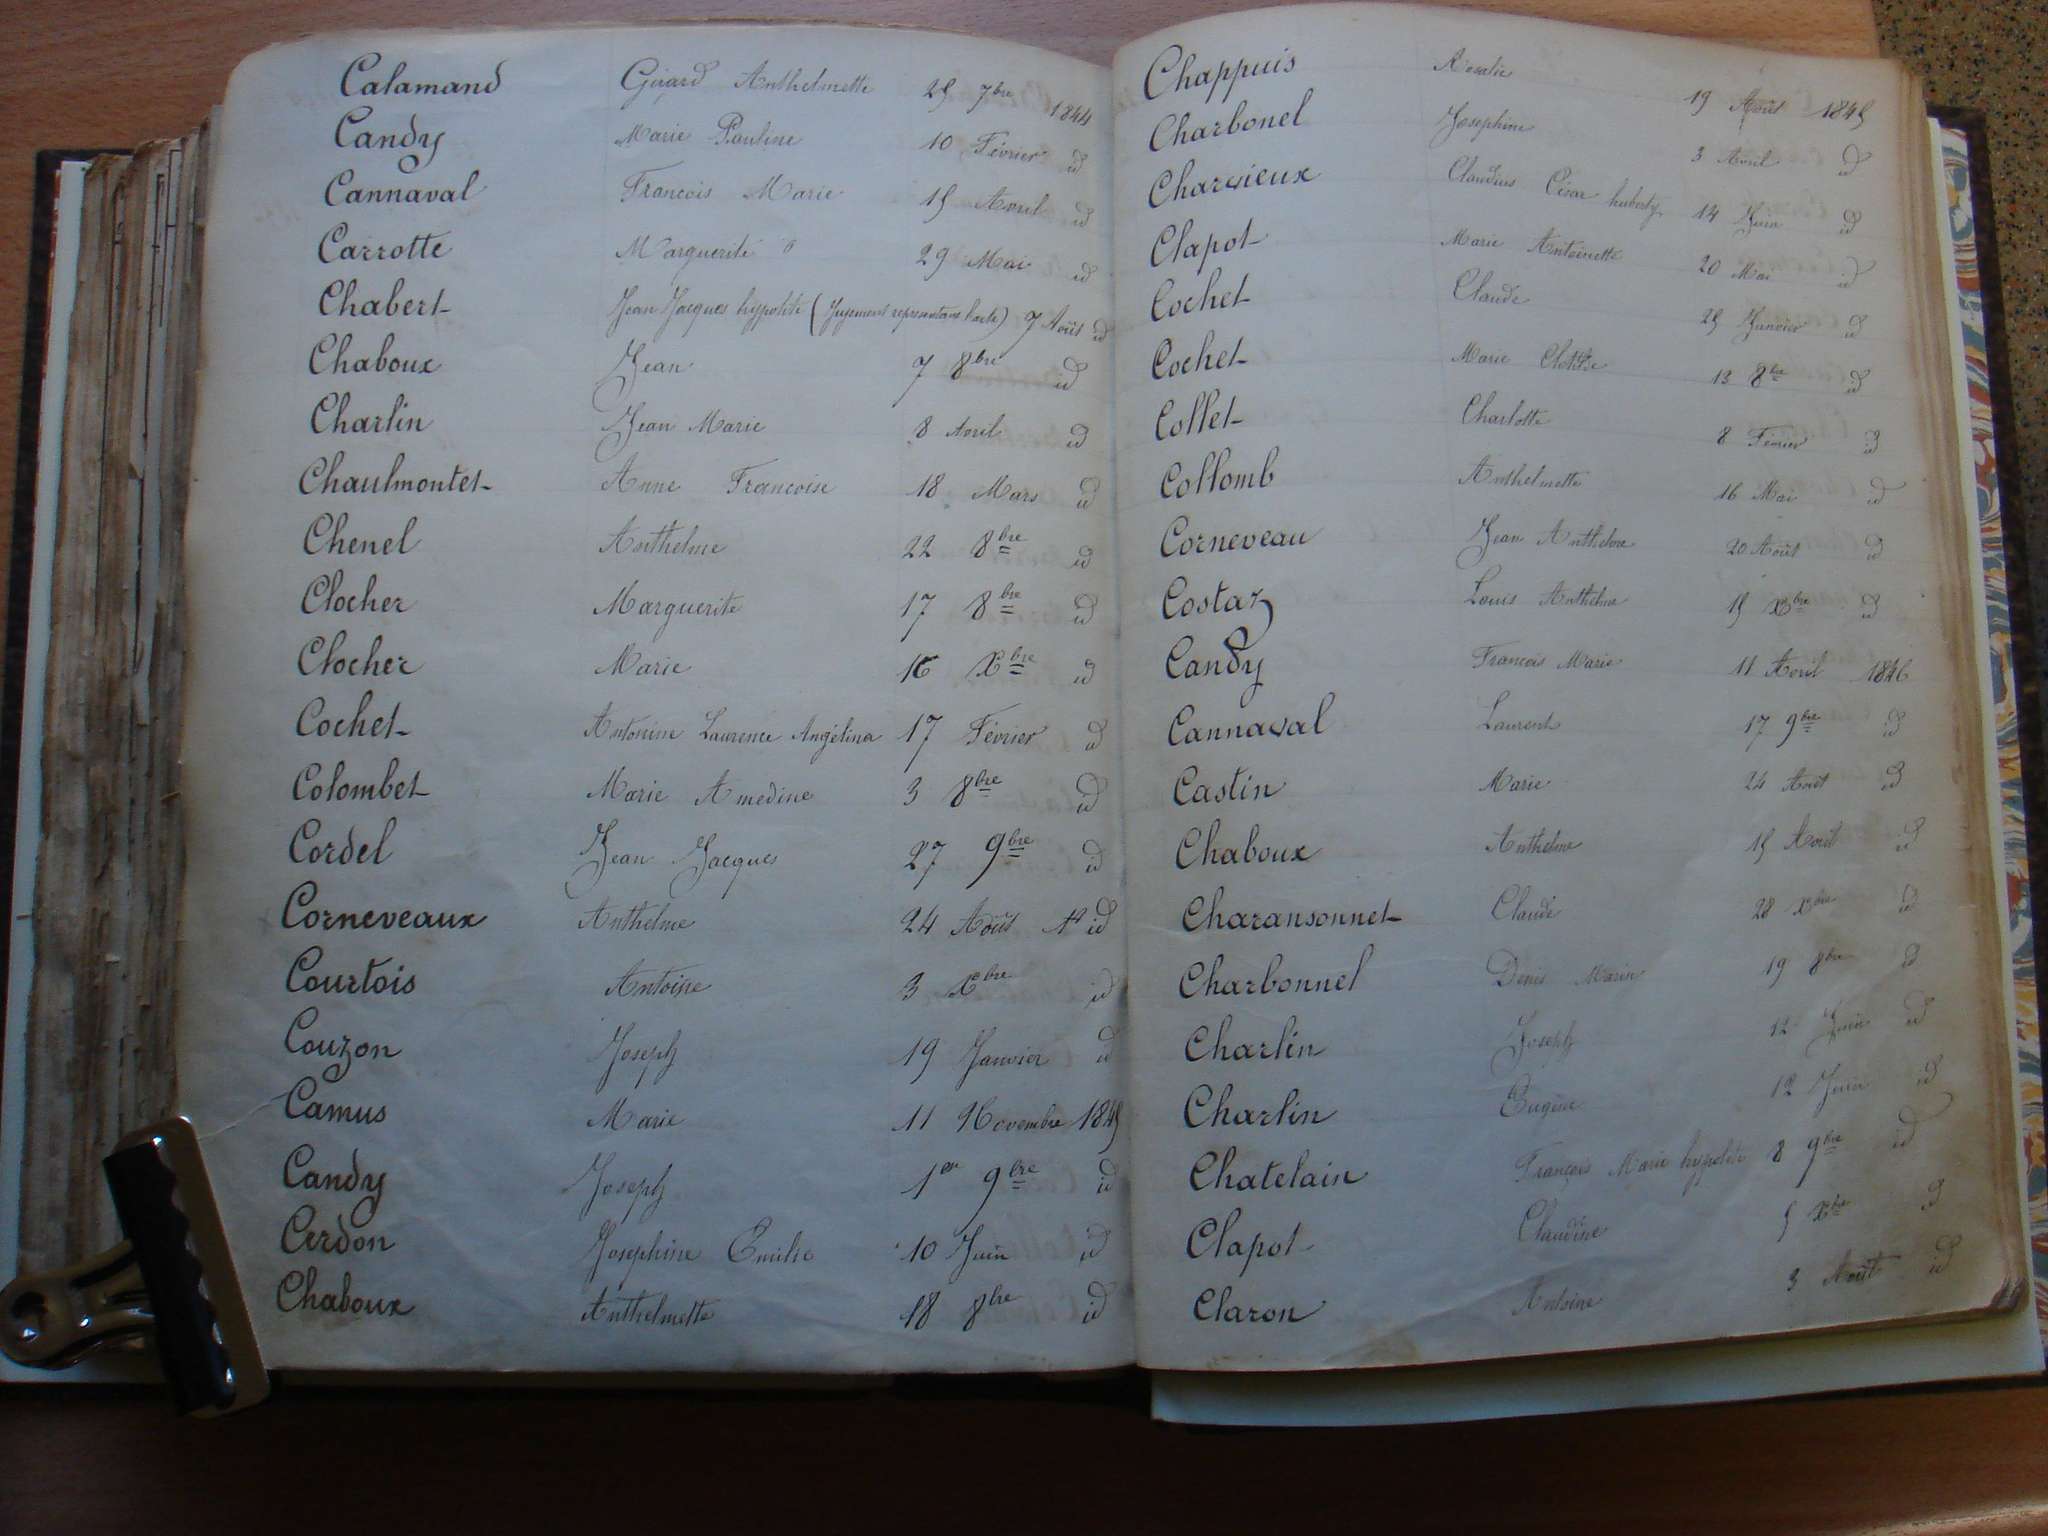 Calamand Girard Anthelmette 25 7bre 1844
Candy Marie Pauline 10 Février id
Cannaval Francois Marie 15 Avril id
Carrotte Marguerite 29 Mai id
Chabert Jean Jacques hippolite (Jugement représentant l'acte) 7 Août id
Chaboux Jean 7 8bre id
Charlin Jean Marie 8 Avril id
Chaulmontet Anne Francoise 18 Mars id
Chenel Anthelme 22 8bre id
Clocher Marguerite 17 8bre id
Clocher Marie 16 Xbre id
Cochet Antonine Laurence Angélina 17 Février id
Colombet Marie Amedine 3 8bre id
Cordel Jean Jacques 27 9bre id
Corneveaux Anthelme 24 Août id
Courtois Antoine 3 Xbre id
Couzon Joseph 19 Janvier id
Camus Marie 11 Novembre 1845
Candy Joseph 1er 9bre id
Cerdon Josephine Emilie 10 Juin id
Chaboux Anthelmette 18 8bre id
Chappuis Rosalie 19 Août 1845
Charbonel Josephine 3 Avril id
Charvieux Claudius César 14 Juin id
Clapot Marie Antoinette 20 Mai id
Cochet Claude 25 Janvier id
Cochet Marie Clotilde 13 8bre id
Collet Charlotte 8 Février id
Collomb Anthelmette 16 Mai id
Corneveau Jean Anthelme 20 Août id
Costaz Louis Anthelme 15 Xbre id
Candy Francois Marie 11 Avril 1846
Cannaval Laurent 17 9bre id
Castin Marie 24 Août id
Chaboux Anthelme 15 Août id
Charansonnet Claude 28 Xbre id
Charbonnel Denis Marin 19 8bre id
Charlin Joseph 12 Juin id
Charlin Eugène 12 Juin id
Chatelain François Marie hypolite 8 9bre id
Clapot Claudine 5 Xbre id
Claron Antoine 3 Août id